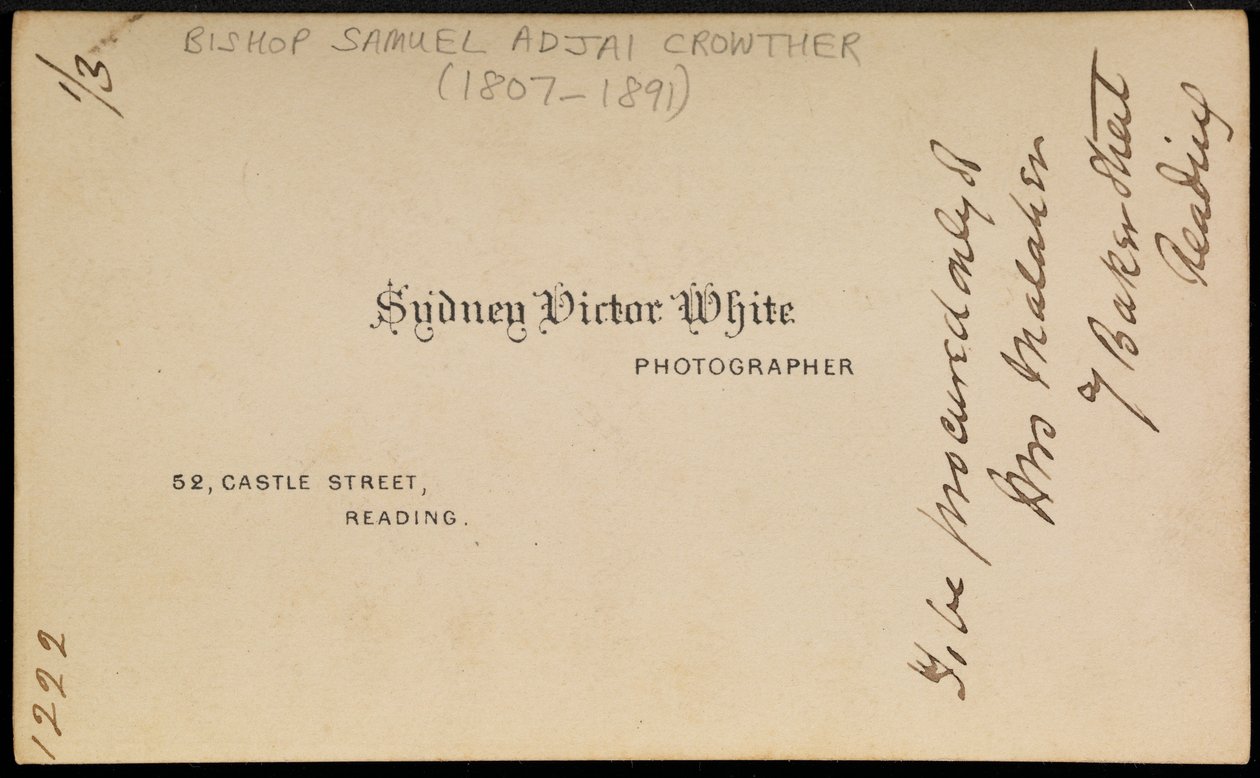 BISHOP SAMUEL ADJAI CROWTHER
(1807-1891)
1/3
Sydney Victor White
PHOTOGRAPHER
52, CASTLE STREET,
READING.
1222
To be procured only of
Mrs Malaher
7 Baker Street
Reading